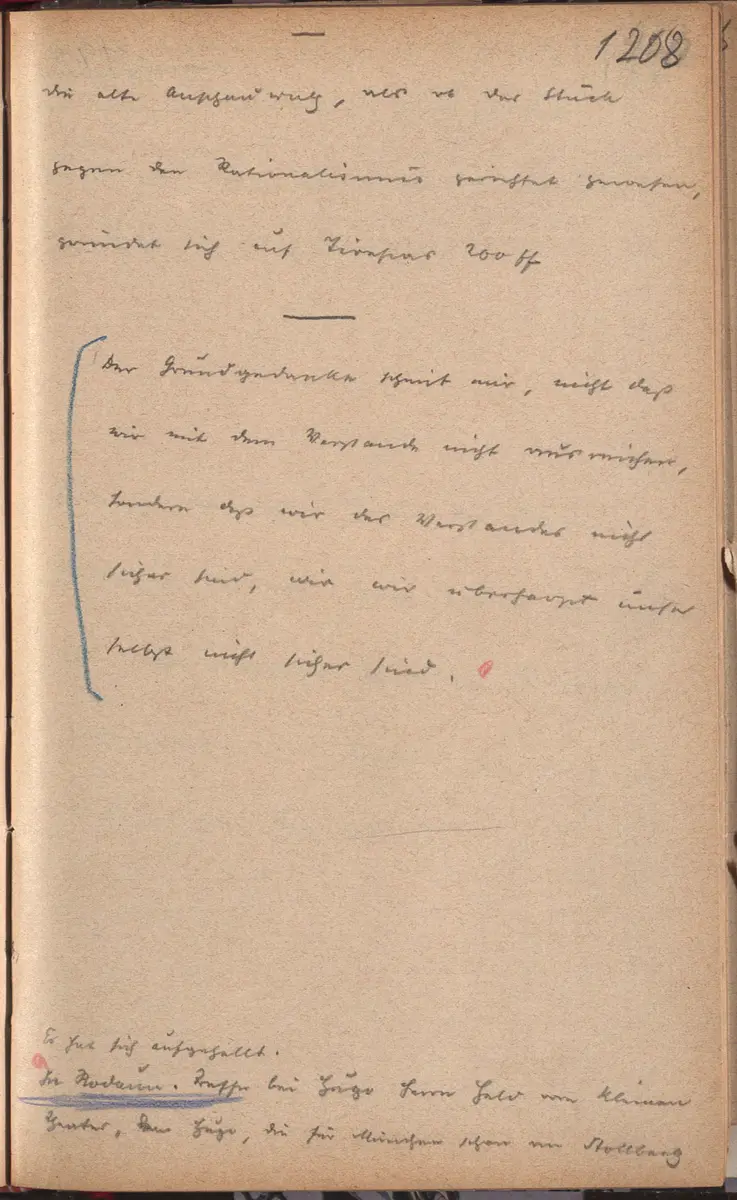 1208
die alte Anschauung, als ob das Stück
gegen den Rationalismus gerichtet gewesen,
gründet sich auf Tiresias 200 ff
Der Grundgedanke scheint mir, nicht daß
wir mit dem Verstande nicht ausreichen,
sondern daß wir des Verstandes nicht
sicher sind, wie wir überhaupt unser
selbst nicht sicher sind.
Es hat sich aufgehellt.
In Rodaun. Treffe bei Hugo Herrn Held vom Kleinen
Theater, dem Hugo, die für München schon an Stollberg